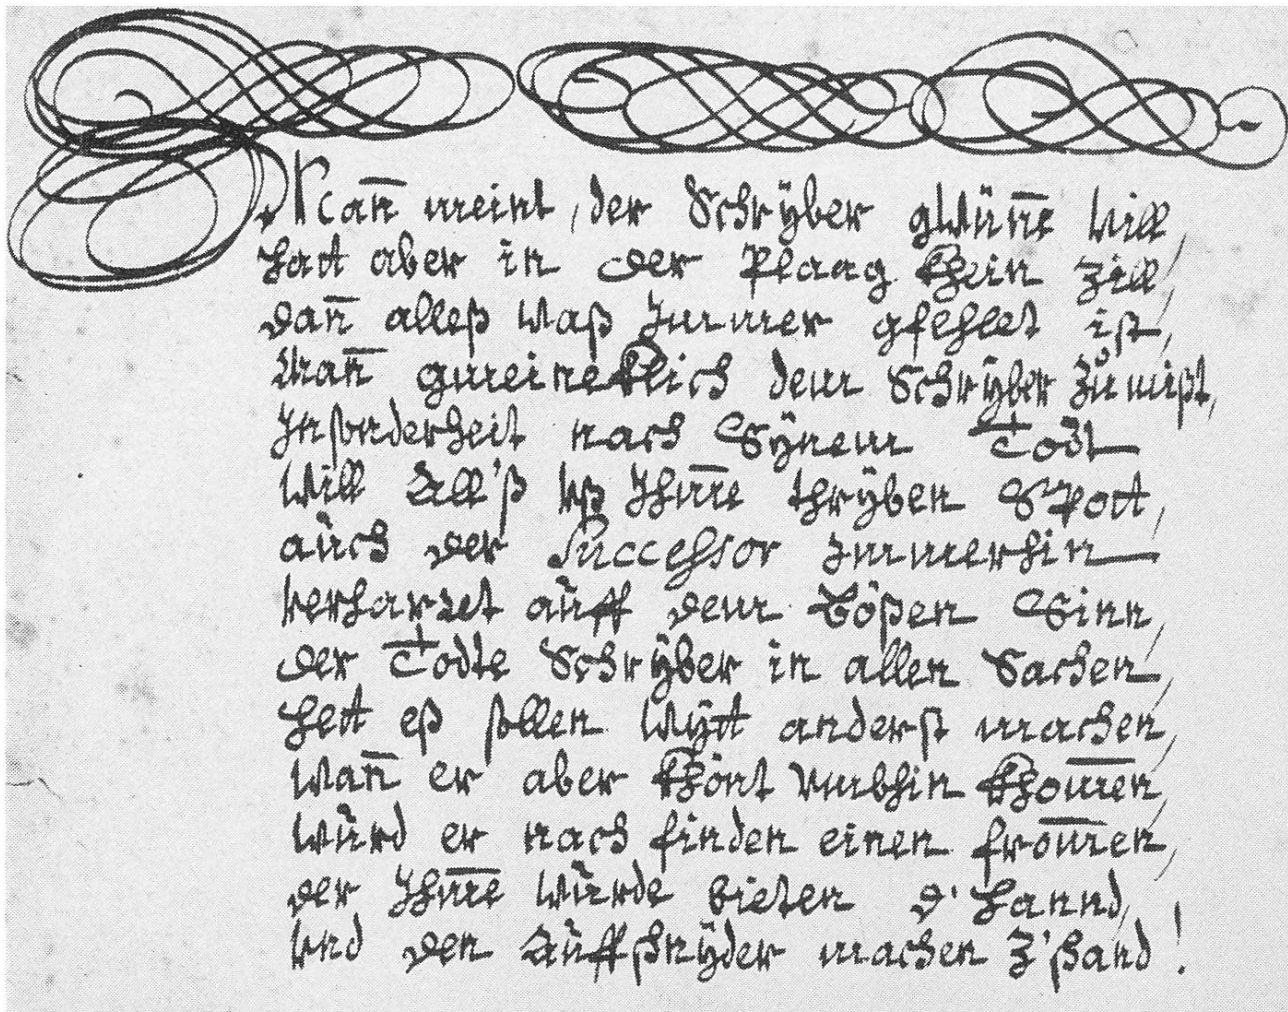 Man̄ meint, der Schrÿber gwün̄e vill,
hatt aber in der Plaag khein Zill,
dan̄ alleß waß Jmmer gfehlet ist,
Man̄ gmeinetlich dem Schrÿber Zůmißt,
Jnßonderheit nach Sÿnem Todt
will All'ß vß Jhm̄e thrÿben Spott,
aůch der Successor Jmmerhin
verharret aůff dem Bößen Sinn,
der Todte Schrÿber in allen Sachen,
hett eß sollen wÿtt anderst machen,
wan̄ er aber khönt vmbhin khom̄en,
wůrd er nach finden einen from̄en,
der Jhm̄e wůrde bieten d'hannd,
vnd den Aůffschnÿder machen Z'schand!